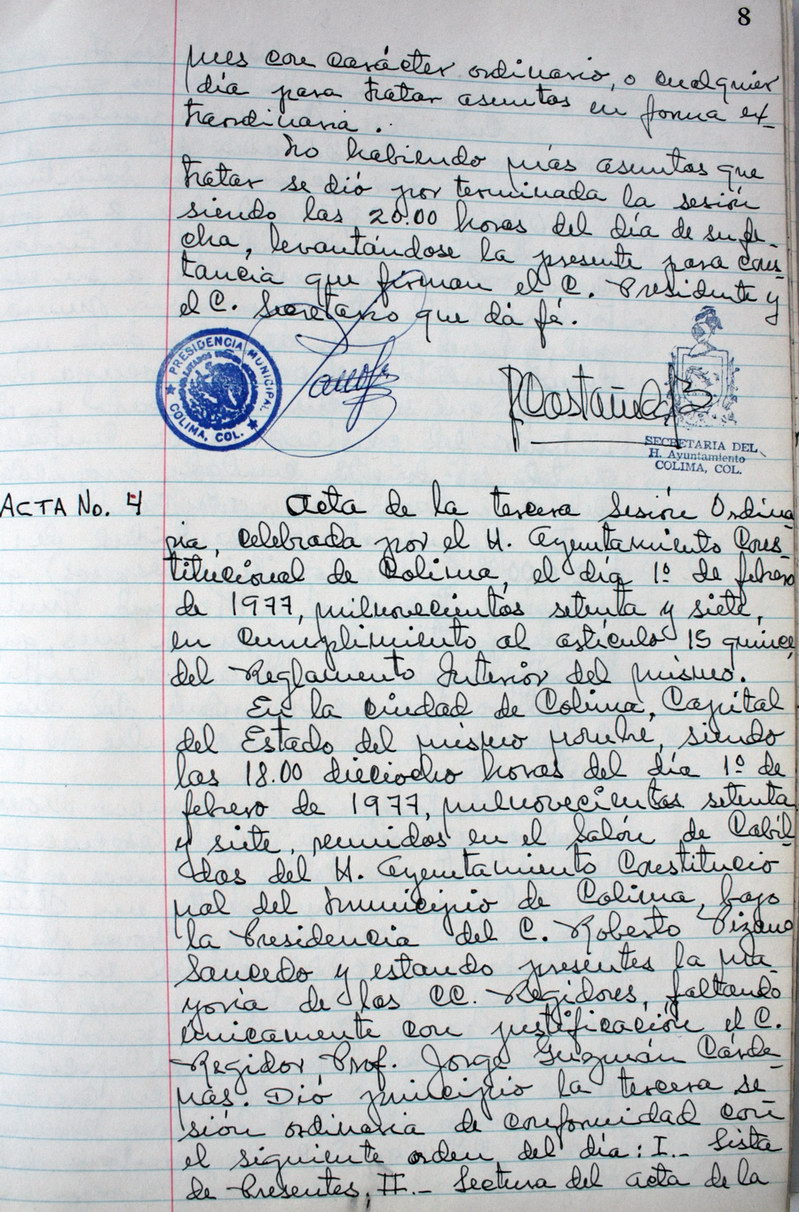 8
pues con carácter ordinario, o cualquier
día para tratar asuntos en forma ex-
traordinaria.
No habiendo más asuntos que
tratar se dió por terminada la sesión
siendo las 20.00 horas del día de su fe-
cha, levantándose la presente para cons-
tancia que firman el C. Presidente y
el C. Secretario que dá fé.
PRESIDENCIA MUNICIPAL
ESTADOS UNIDOS MEXICANOS
COLIMA, COL.
SECRETARIA DEL
H. Ayuntamiento
COLIMA, COL.
ACTA No. 4
Acta de la tercera Sesión Ordina
ria, celebrada por el H. Ayuntamiento Cons-
titucional de Colima, el día 1º de febrero
de 1977, milnovecientos setenta y siete,
en cumplimiento al artículo 15 quince
del Reglamento Interior del mismo.
En la ciudad de Colima, Capital
del Estado del mismo nombre, siendo
las 18.00 dieciocho horas del día 1º de
febrero de 1977, milnovecientos setenta
y siete, reunidos en el Salón de Cabil-
dos del H. Ayuntamiento Constitucio
nal del Municipio de Colima, bajo
la Presidencia del C. Roberto Pizano
Saucedo y estando presentes la ma-
yoría de los CC. Regidores, faltando
únicamente con justificación el C.
Regidor Prof. Jorge Guzmán Cárde-
nas. Dió principio la tercera se-
sión ordinaria de conformidad con
el siguiente orden del día: I.- Lista
de Presentes, II.- Lectura del acta de la